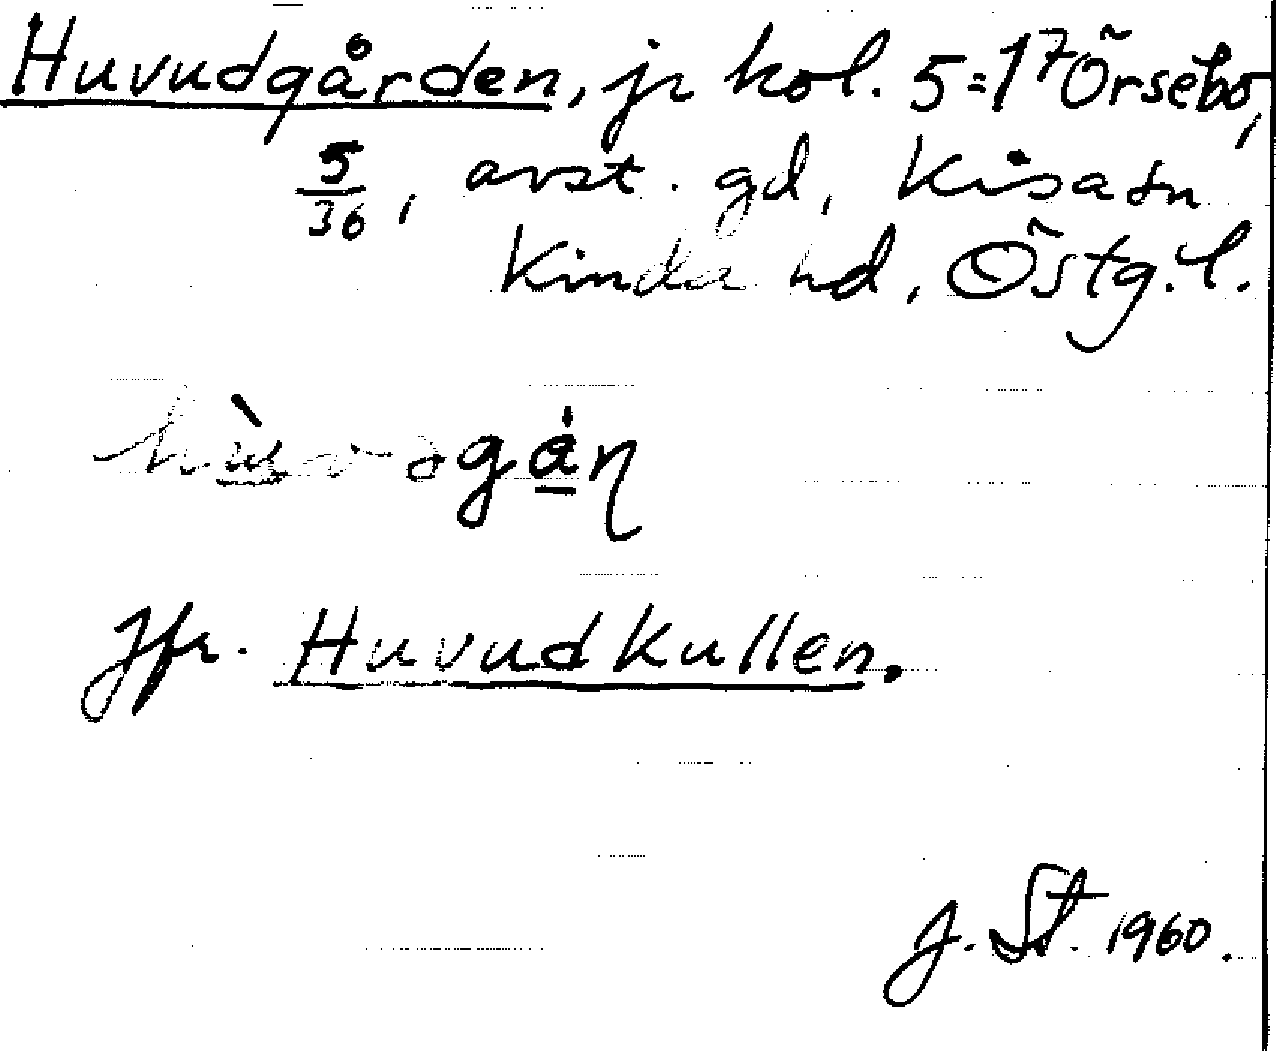 Huvudgården, jr kol. 5:1⁷ Örsebo,
5/36, avst. gd, Kisa sn
Kinda hd, Östg. l.
Jfr. Huvudkullen.
J. St. 1960.